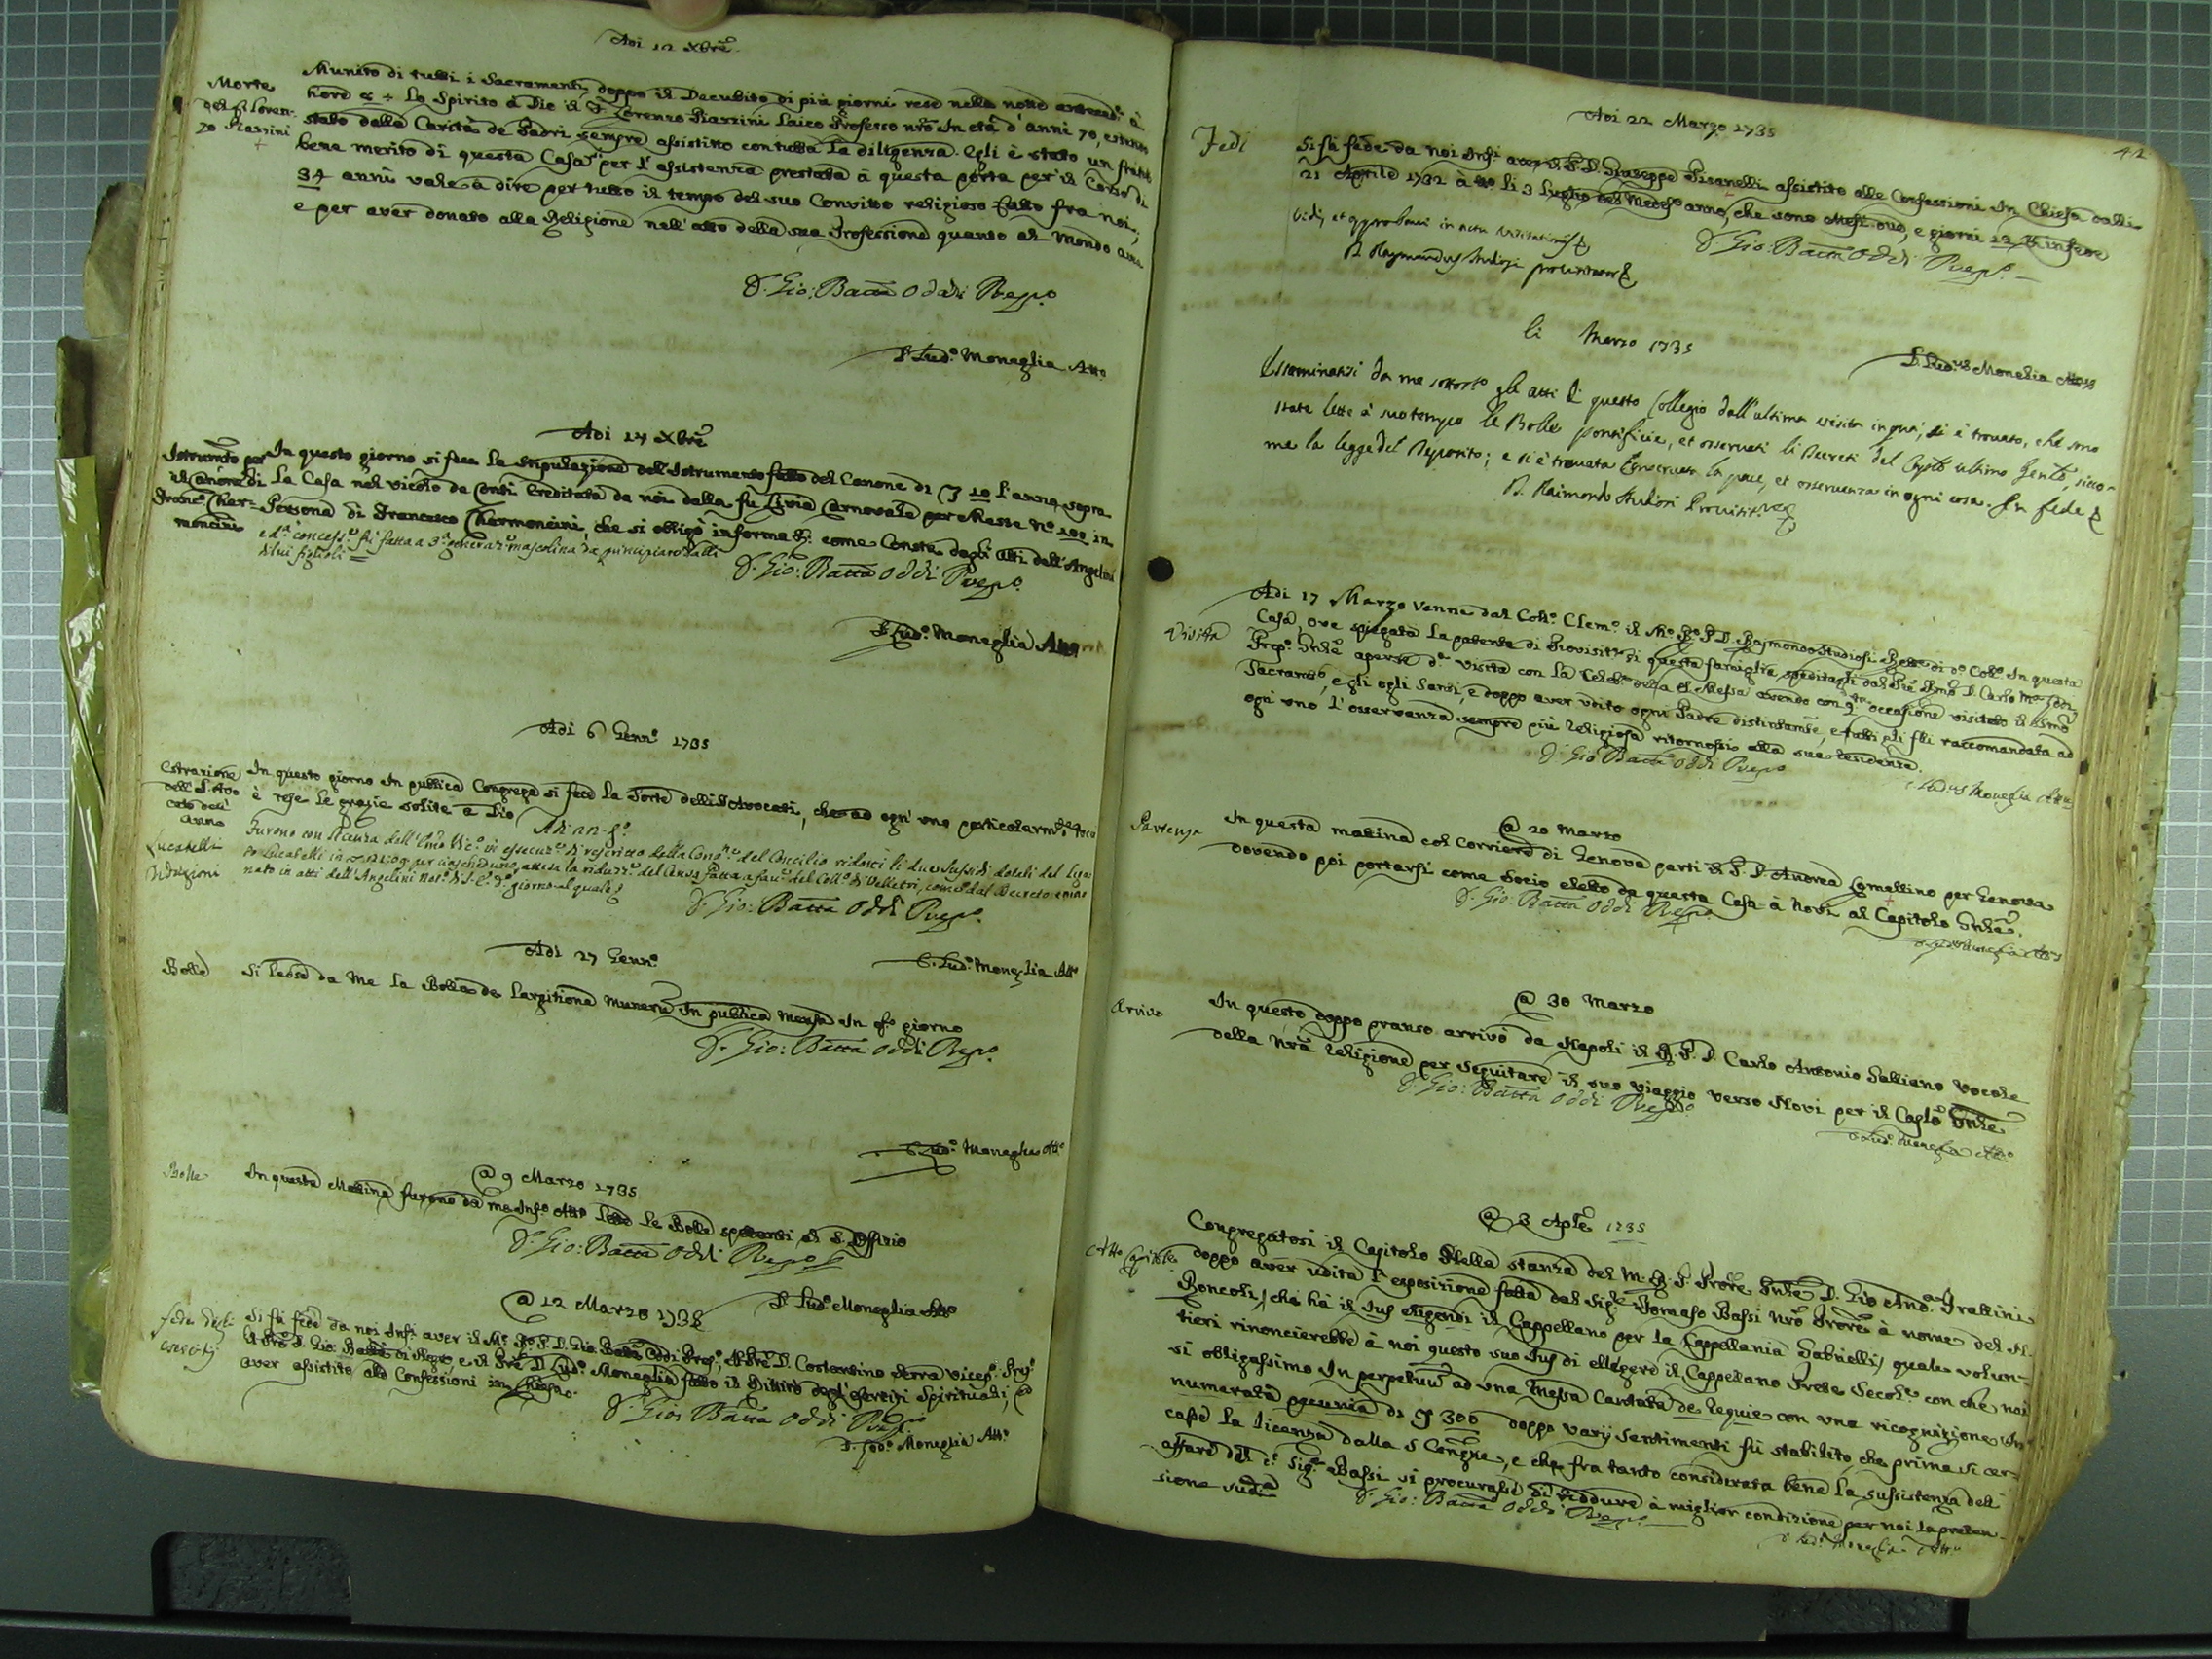 Adi 12 Xbre
Morte
del fr Loren-
zo Razzini
Munito di tutti i Sacramenti, doppo il Decubito di più giorni rese nella notte à
hore 8 + lo Spirito à Dio il fr Lorenzo Razzini Laico Professo nro In età d'anni 70, essendo
stato dalla Carità de Padri sempre assistito con tutta la diligenza. Egli è stato un fratello
bene merito di questa Casa per l'assistenza prestata à questa porta per il Corso di
34 anni vale à dire per tutto il tempo del suo Convitto religioso fatto fra noi,
e per aver donato alla Religione nell'atto della sua Professione quanto al Mondo avea
D. Gio: Batta Oddi Prepo
D. Ludo Moneglia Atto
Adi 14 Xbre
Istrumto per
il Canone di
Franco Cher-
moncini
In questo giorno si fece la stipulazione dell'Istrumento fatto del Canone di 10 l'anno, sopra
la Casa nel vicolo de Conti Ereditata da noi dalla fù Livia Carnovale per Messe No 100 in
Persona di Francesco Chermoncini, che si obligò in forma come Consta degli Atti dell'Angelini
e da concesse fù fatta a 3a generaze mascolina da principiare dalli
di lui figlioli
D. Gio: Batta Oddi Prepo
D. Ludo Moneglia Atto
Adi 6 Genno 1735
Estrazione
dell' S. Avo
cato dell'
anno
In questo giorno In publica Congrega si fece la Sorte delli SS Avocati, che ad ogn'uno particolarmte tocò
è rese le grazie solite a Dio
Adi 22 do
Lucatelli
Riduzioni
Furono con licenza dell'Emo Vico in essecuze di rescritto della Congne del Concilio ridotti li due sussidi dotali del Lega
to Lucatelli in per ciascheduno, attesa la riduze del Censo fatta a favo del Collo di Velletri, come dal Decreto ema
nato in atti dell'Angelini Noto di S. Eo do giorno al quale
D. Gio: Batta Oddi Prepo
D. Ludo Moneglia Atto
Adi 27 Genno
Bolle
Si lesse da Me la Bolla de Largitione Muneru In publica Mensa In qo giorno
D. Gio: Batta Oddi Prepo
D. Ludo Moneglia Atto
@ 9 Marzo 1735
Bolle
In questa Matina furono da me Info Atto lette le Bolle spettanti al S. Offizio
D. Gio: Batta Oddi Prepo
D. Ludo Moneglia Atto
@ 12 Marzo 1735
fede degli
esercitj
Si fà fede da noi Infi aver il Mo Ro P. D. Gio Batta Oddi Prepo, il Pre D. Costantino Serra Vicepo
il Pre D. Gio: Batta di Negro, e il Pre D. Ludo Moneglia fatto il Ritiro degl'Esercizi Spirituali, @
aver assistito alle Confessioni in Chiesa.
D. Gio: Batta Oddi Prepo
D. Ludo Moneglia Atto
42
Adi 22 Marzo 1735
Fedi
Si fà fede da noi Infi aver il P. D. Giuseppe Pisanelli assistito alle Confessioni In Chiesa dalli
21 Aprile 1732 à tto li 3 Luglio del Medesimo anno, che sono Mesi due, e giorni 12 In fede
D. Gio: Batta Oddi Prepo
Vidi, et approbavi in actu visitationis
D. Raymundus Studiosi provisitator
D. Ludus Moneglia Attus
li Marzo 1735
Esseminatisi da me sottosto gli atti di questo Collegio dall'ultima visita in quà, si è trovato, che sono
state lette à suo tempo le Bolle pontificie, et osservati li Decreti del Caplo ultimo Genle, sicco-
me la legge del Deposito; e si è trovata conservata la pace, et osservanza in ogni cosa. In fede
D. Raimondo Studiosi Provisitre
Visita
Adi 17 Marzo Venne dal Collo Clemo il Mo Ro P. D. Raymondo Studiosi Rettre di do Collo In questa
Casa, ove spiegata la patente di Provisitre di questa famiglia, speditagli dal Pre Rmo D. Carlo Ma Lodi
Prepo Gnle aperse da visita con la Celebe della S. Messa avendo con qta occasione visitato il SSmo
Sacramto, e gli ogli Santi, e doppo aver udito ogni Padre distintamte, e tutti gli flli raccomandata ad
ogn'uno l'osservanza sempre più religiosa ritornossio alla sua residenza.
D. Gio Batta Oddi Prepo
D. Ludus Moneglia Attus
@ 20 Marzo
Partenza
In questa matina col Corriere di Genova partì il P. D. Andrea Lomellino per Genova
dovendo poi portarsi come Socio eletto da questa Casa à Novi al Capitolo Gnle.
D. Gio: Batta Oddi Prepo
D. Ludus Moneglia Attus
@ 30 Marzo
Arrivo
In questo doppo pranso arrivò da Napoli il R. P. D. Carlo Antonio Galliano Vocale
della nra Religione per seguitare il suo viaggio verso Novi per il Caplo Gnle
D. Gio: Batta Oddi Prepo
D. Ludo Moneglia Atto
@ 3 Aple 1735
Atto Capitole
Congregatosi il Capitolo Nella stanza del M. R. P. Prore Gnle D. Gio Anda Frattini
doppo aver udita l'esposizione fatta dal Sigre Tomaso Bassi nro Prore à nome del
Roncoli, che hà il Jus eligendi il Cappellano per la Cappellania Gabrielli, quale volun-
tieri rinoncierebbe à noi questo suo Jus di ellegere il Cappellano Prete Secole con che noi
si obligassimo In perpetuo ad una Messa Cantata de Requie con una ricognizione In
numerata pecunia di 300 doppo varij sentimenti fù stabilito, che prima si cer-
casse la licenza dalla S Congne, e che fra tanto considerata bene la sussistenza dell'
affare dal do Sigre Bassi si procurasse di riddurre à miglior condizione per noi la preten-
sione sudta
D. Gio: Batta Oddi Prepo
D. Ludo Moneglia Atto